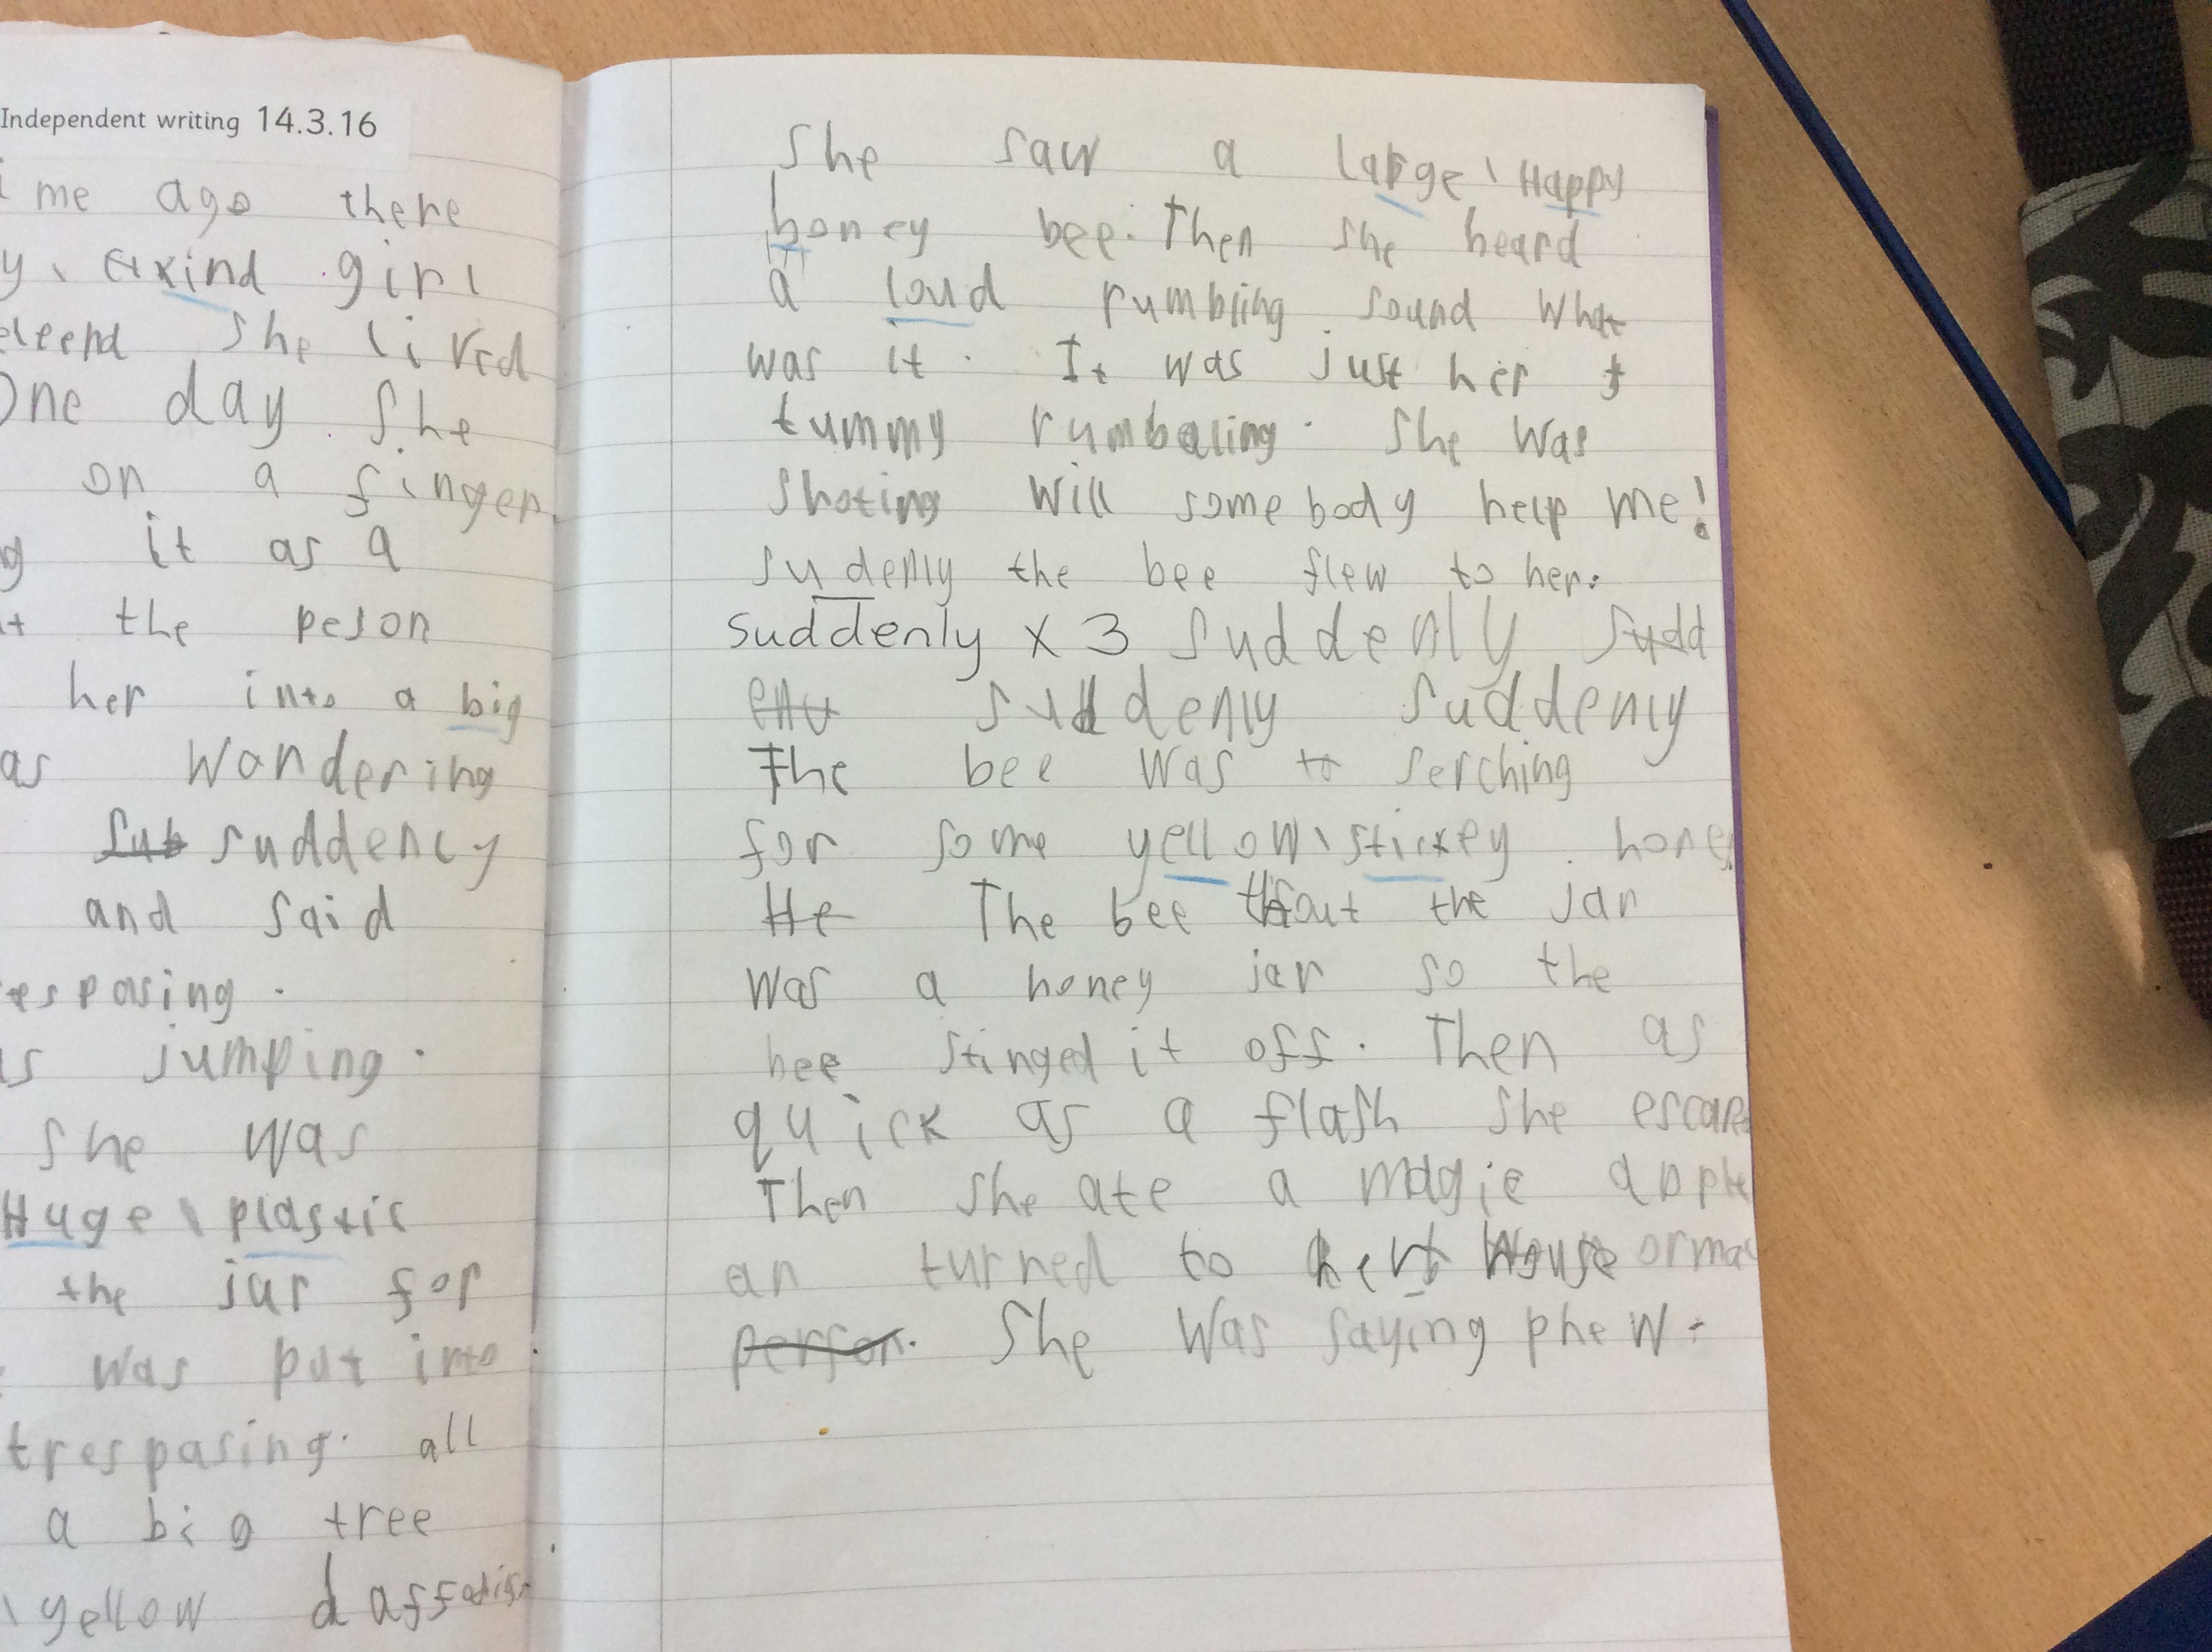 Independent writing 14.3.16
me ago there
kind girl
she lived
One day she
on a finger
it as a
the peson
her into a big
as wondering
Sub suddency
and said
espasing.
jumping.
she was
Huge, plastic
the jar for
was put into
trespasing. all
a big tree
yellow daffodils
She saw a large, Happy
honey bee. Then she heard
a loud rumbling sound what
was it. It was just her t
tummy rumbaling. She was
shoting will somebody help me!
sudenly the bee flew to her.
suddenly x 3 suddenly sudd
enu suddenly suddenly
The bee was to serching
for some yellow, stickey honey
He The bee thout the jar
was a honey jar so the
bee stinged it off. Then as
quick as a flash she escape
Then she ate a magic apple
an turned to
person. She was saying phew.